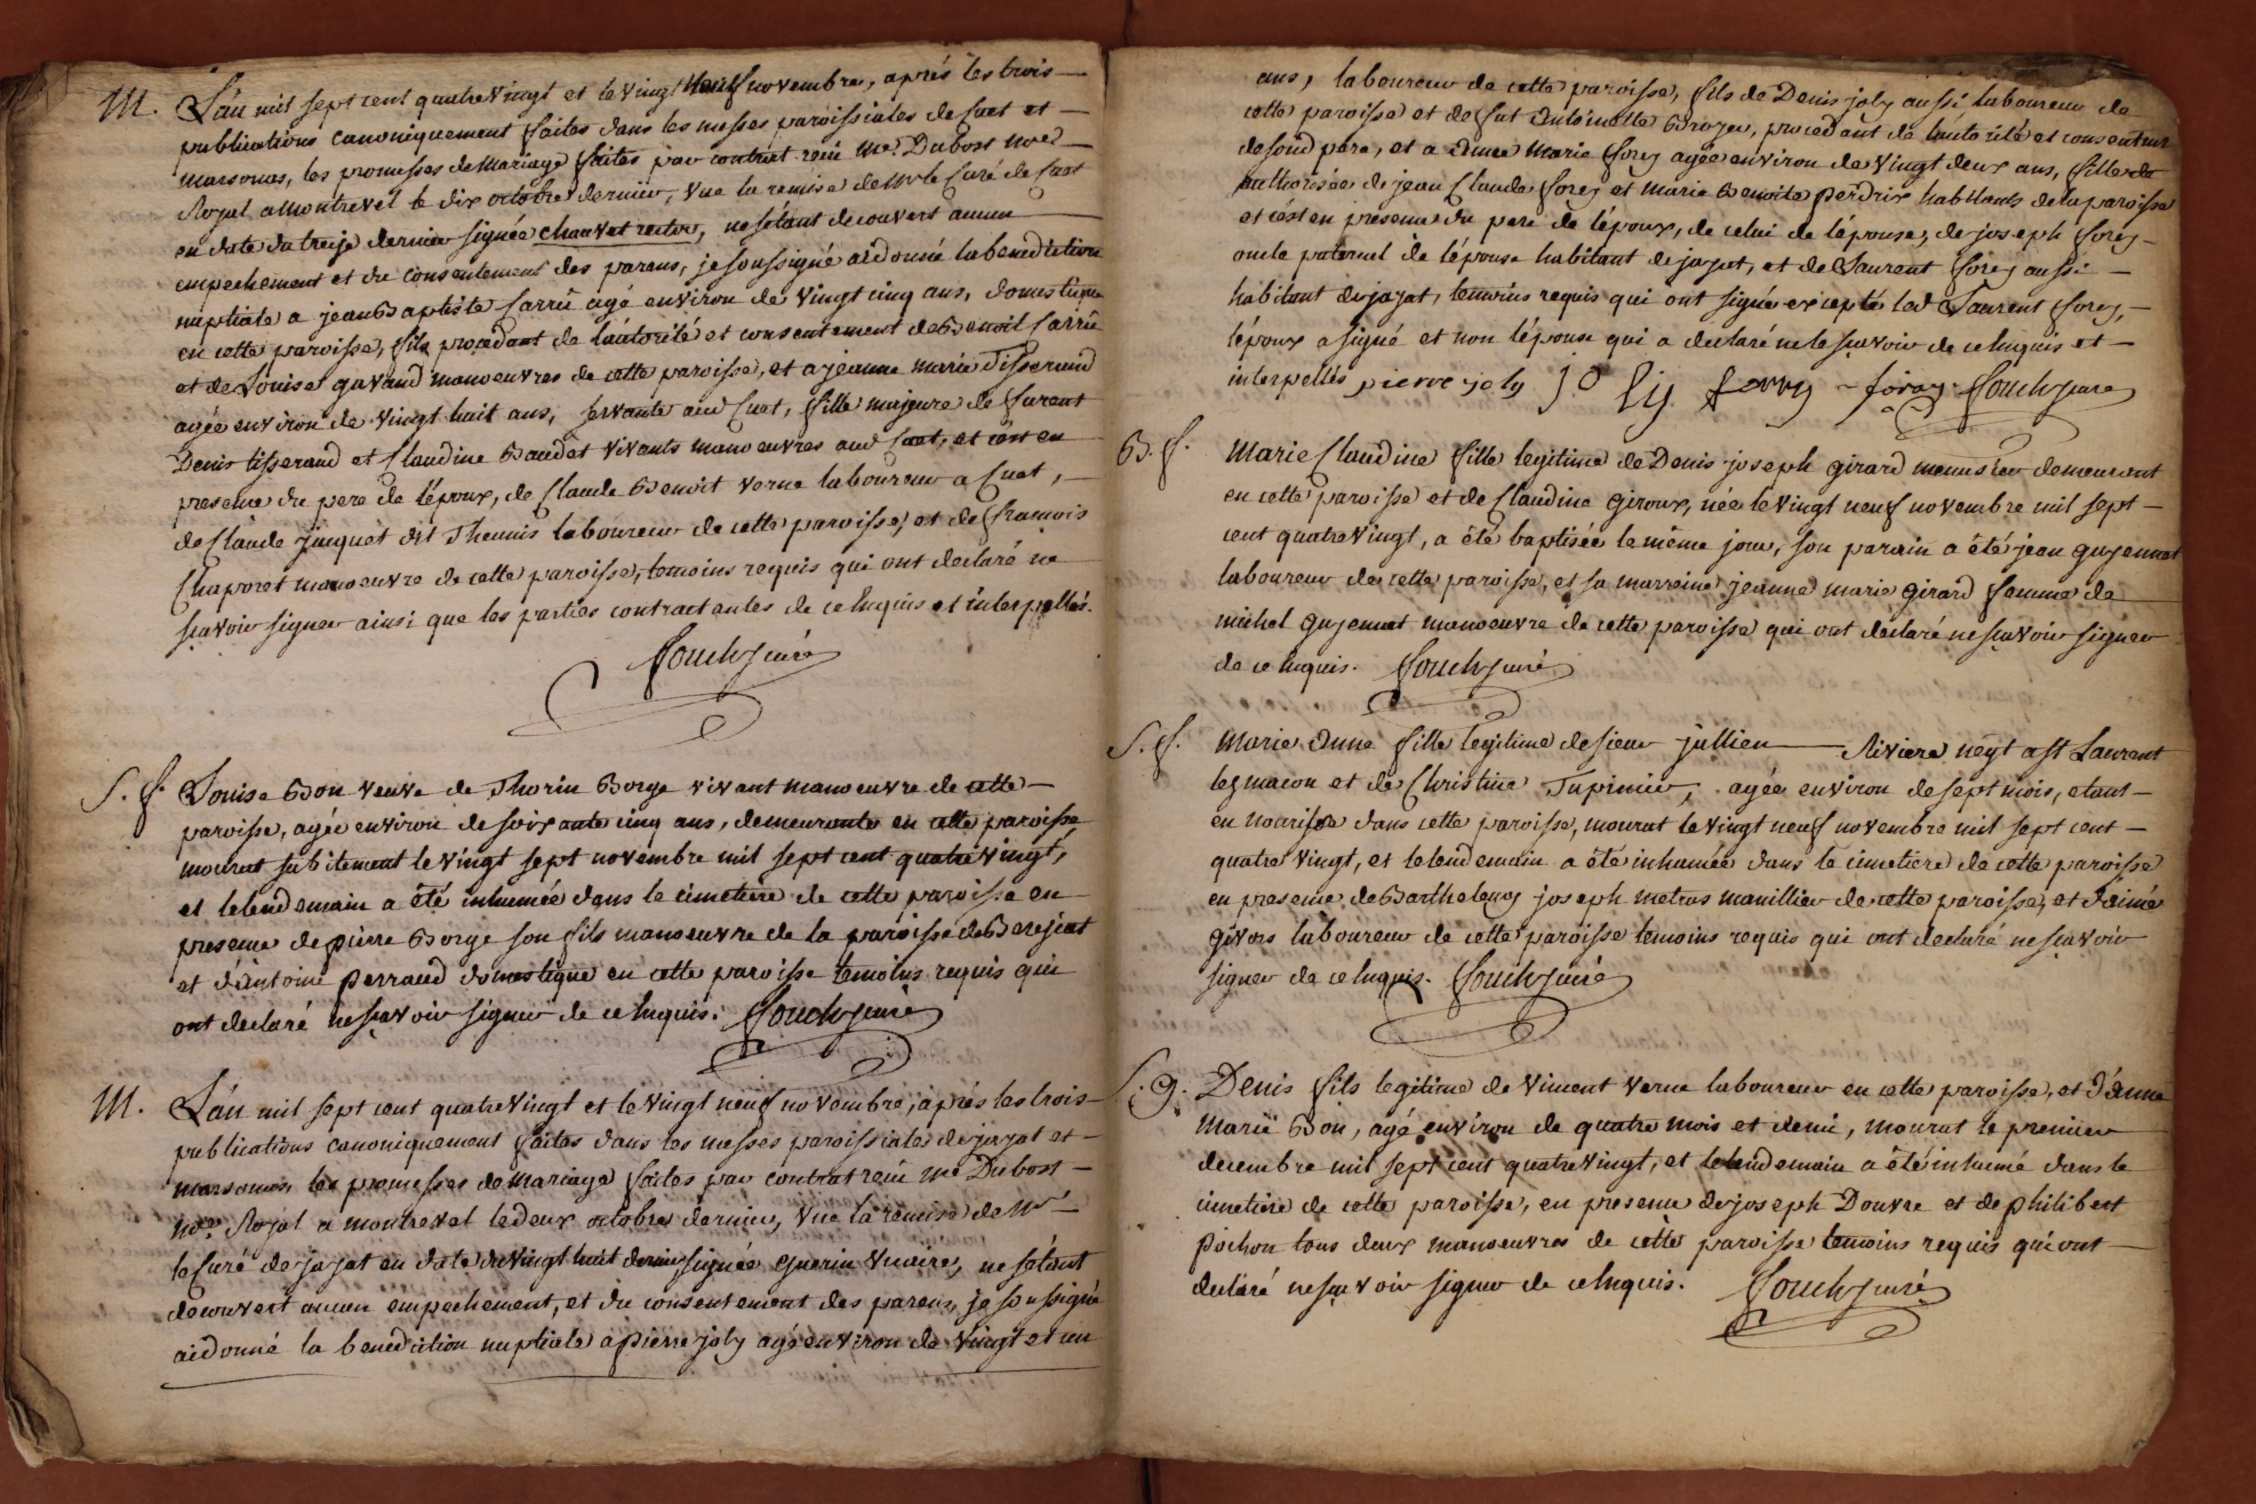 M. L'an mil sept cent quatre vingt et le vingt neuf novembre, aprés les trois
publications canoniquement faites dans les messes paroissiales de Cuet et
marsonas, les promesses de mariage faites par contrat reçu me. Dubost nore
Royal a montrevel le dix octobre dernier, vue la remise de mr le Curé de Cuet
en date du treize dernier signée chauvet rector, ne s'étant decouvert aucun
empechement et du consentement des parans, je soussigné ai donné la benediction
nuptiale a jean Baptiste Carru agé environ de vingt cinq ans, domestique
en cette paroisse, fils procedant de l'autorité et consentement de Benoit Carru
et de Louise gavand manoeuvres de cette paroisse, et a jeanne marie Tisserand
agée environ de vingt huit ans, servante aud Cuet, fille majeure de furent
Denis tisserand et Claudine Baudet vivants manoeuvres aud Cuet, et c'est en
presence du pere de l'époux, de Claude Benoit verne laboureur a Cuet,
de Claude juquet dit Thennis laboureur de cette paroisse, et de francois
Chaporet manoeuvre de cette paroisse, temoins requis qui ont declaré ne
sçavoir signer ainsi que les parties contractantes de ce enquis et interpellés.
Couch curé
S. f. Louise Bon veuve de Thorin Borge vivant manoeuvre de cette
paroisse, agée environ de soixante cinq ans, demeurante en cette paroisse
mourut subitement le vingt sept novembre mil sept cent quatre vingt,
et le lendemain a été inhumée dans le cimetière de cette paroisse en
presence de pierre Borge son fils manoeuvre de la paroisse de Berejiat
et d'antoine perraud domestique en cette paroisse temoins requis qui
ont declaré ne sçavoir signer de ce enquis. Couch curé
M. L'an mil sept cent quatre vingt et le vingt neuf novembre, aprés les trois
publications canoniquement faites dans les messes paroissiales de jayat et
marsonas, les promesses de mariage faites par contrat reçu me Dubost
nore. Royal a montrevel le deux octobre dernier, vue la remise de Mr
le Curé de jayat en date du vingt huit dernier signée Guerin vicaire, ne s'étant
decouvert aucun empechement, et du consentement des parens, je soussigné
ai donné la benediction nuptiale a pierre joly agé environ de vingt et un
ans, laboureur de cette paroisse, fils de Denis joly aussi laboureur de
cette paroisse et de fut Antoinette Broyer, procedant de l'autorité et consentement
de sond pere, et a anne marie forey agée environ de vingt deux ans, fille de
authorisée de jean Claude forey et marie Benoite perdrix habitants de la paroisse
et c'est en presence du pere de l'époux, de celui de l'épouse, de joseph forey
oncle paternel de l'épouse habitant de jayat, et de Laurent forey aussi
habitant de jayat, temoins requis qui ont signé excepté led Laurent forey,
l'époux a signé et non l'épouse qui a declaré ne le sçavoir de ce enquis et
interpellés pierre joly jo ly forry foray Couch curé
B. f. Marie Claudine fille legitime de Denis joseph girard menusier demeurant
en cette paroisse et de Claudine Giroux, née le vingt neuf novembre mil sept
cent quatre vingt, a été baptisée le même jour, son parain a été jean guyennet
laboureur de cette paroisse, et sa marreine jeanne marie girard femme de
michel guyennet manoeuvre de cette paroisse qui ont declaré ne sçavoir signer
de ce enquis. Couch curé
S. f. Marie anne fille legitime de sieur jullien Riviere neyt a St Laurent
les macon et de Christine Tupinier, agée environ de sept mois, etant
en nourisse dans cette paroisse, mourut le vingt neuf novembre mil sept cent
quatre vingt, et le lendemain a été inhumée dans le cimetière de cette paroisse
en presence de Barthelemy joseph metras manillier de cette paroisse, et d'aimé
givors laboureur de cette paroisse temoins requis qui ont declaré ne sçavoir
signer de ce enquis. Couch curé
S. g. Denis fils legitime de vincent verne laboureur en cette paroisse, et d'anne
marie Bon, agé environ de quatre mois et demi, mourut le premier
decembre mil sept cent quatre vingt, et le lendemain a été inhumé dans le
cimetière de cette paroisse, en presence de joseph Douvre et de philibert
pochon tous deux manoeuvres de cette paroisse temoins requis qui ont
declaré ne sçavoir signer de ce enquis. Couch curé